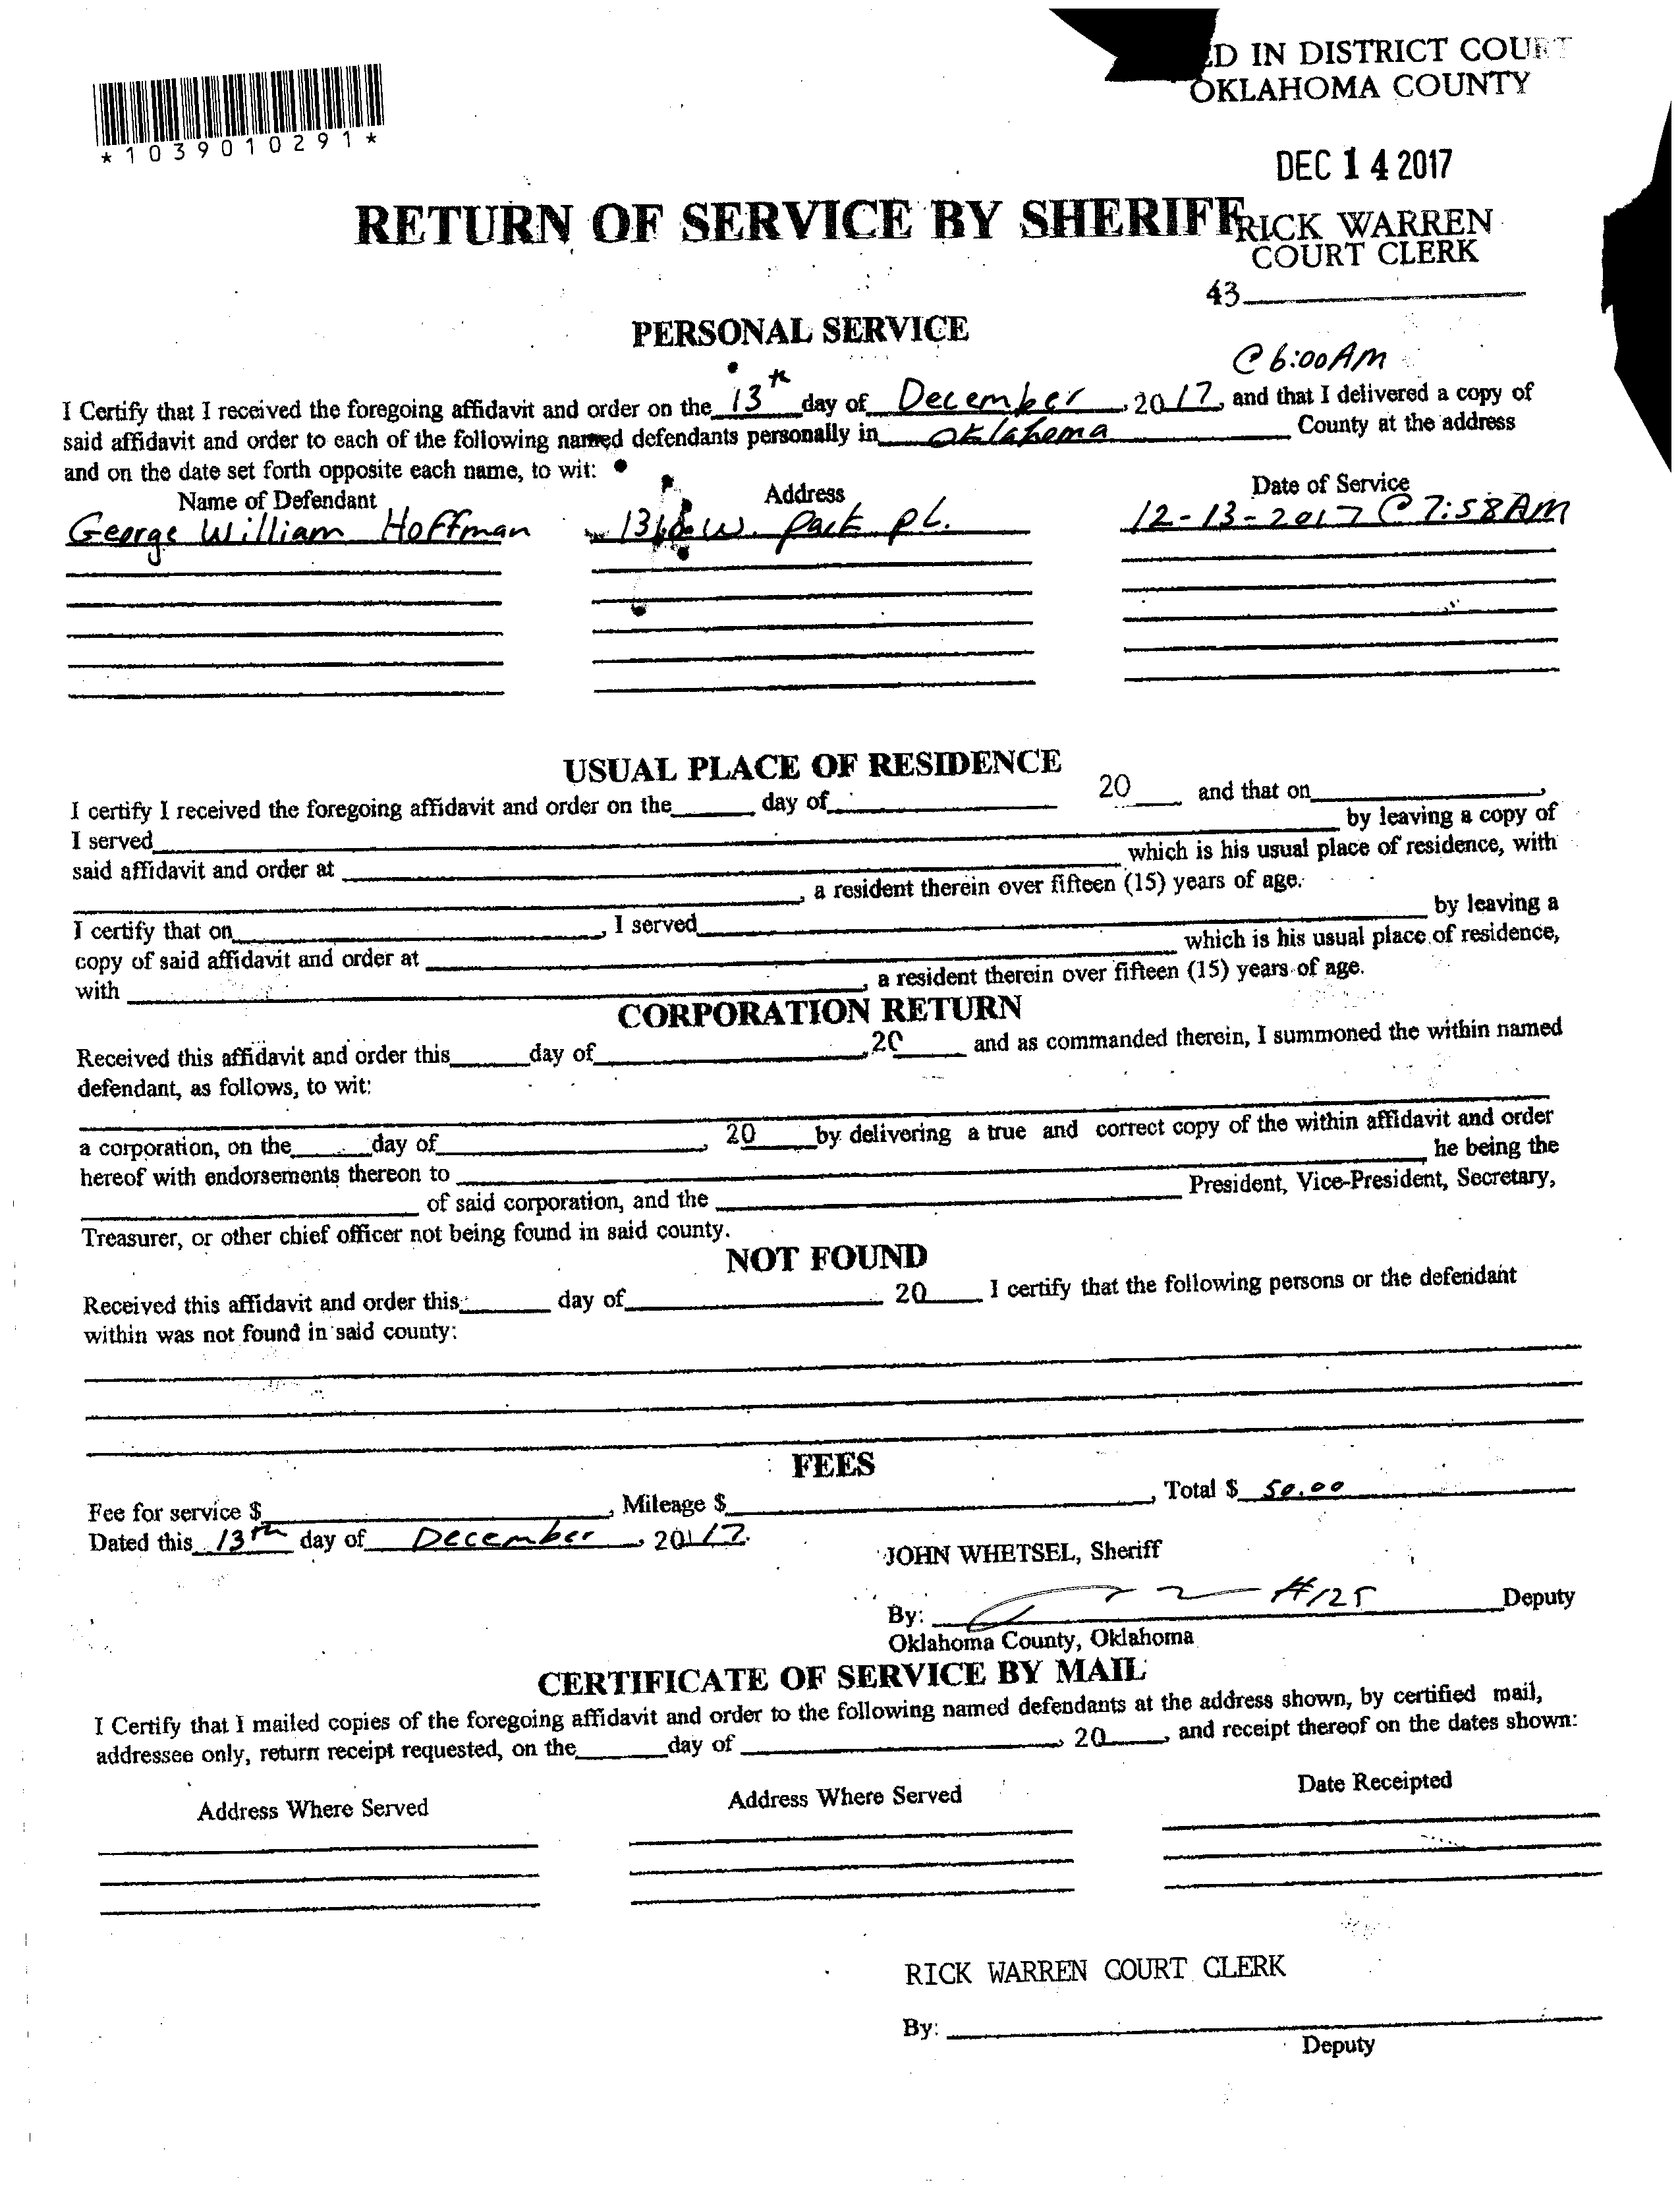 D IN DISTRICT COURT
OKLAHOMA COUNTY
*1039010291*
DEC 14 2017
RETURN OF SERVICE BY SHERIFF
RICK WARREN
COURT CLERK
43
PERSONAL SERVICE
@ 6:00 AM
I Certify that I received the foregoing affidavit and order on the 13th day of December, 2017, and that I delivered a copy of
said affidavit and order to each of the following named defendants personally in Oklahoma County at the address
and on the date set forth opposite each name, to wit:
Name of Defendant Address Date of Service
George William Hoffman W. Park PL. 12-13-2017 @ 7:58 AM
USUAL PLACE OF RESIDENCE
I certify I received the foregoing affidavit and order on the day of 20 and that on,
I served by leaving a copy of
said affidavit and order at which is his usual place of residence, with
, a resident therein over fifteen (15) years of age.
I certify that on, I served by leaving a
copy of said affidavit and order at which is his usual place of residence,
with, a resident therein over fifteen (15) years of age.
CORPORATION RETURN
Received this affidavit and order this day of, 20 and as commanded therein, I summoned the within named
defendant, as follows, to wit:
a corporation, on the day of, 20 by delivering a true and correct copy of the within affidavit and order
hereof with endorsements thereon to he being the
of said corporation, and the President, Vice-President, Secretary,
Treasurer, or other chief officer not being found in said county.
NOT FOUND
Received this affidavit and order this day of 20 I certify that the following persons or the defendant
within was not found in said county:
FEES
Fee for service $, Mileage $, Total $ 50.00
Dated this 13th day of December, 2017.
JOHN WHETSEL, Sheriff
By: #125 Deputy
Oklahoma County, Oklahoma
CERTIFICATE OF SERVICE BY MAIL
I Certify that I mailed copies of the foregoing affidavit and order to the following named defendants at the address shown, by certified mail,
addressee only, return receipt requested, on the day of, 20, and receipt thereof on the dates shown:
Address Where Served Address Where Served Date Receipted
RICK WARREN COURT CLERK
By:
Deputy